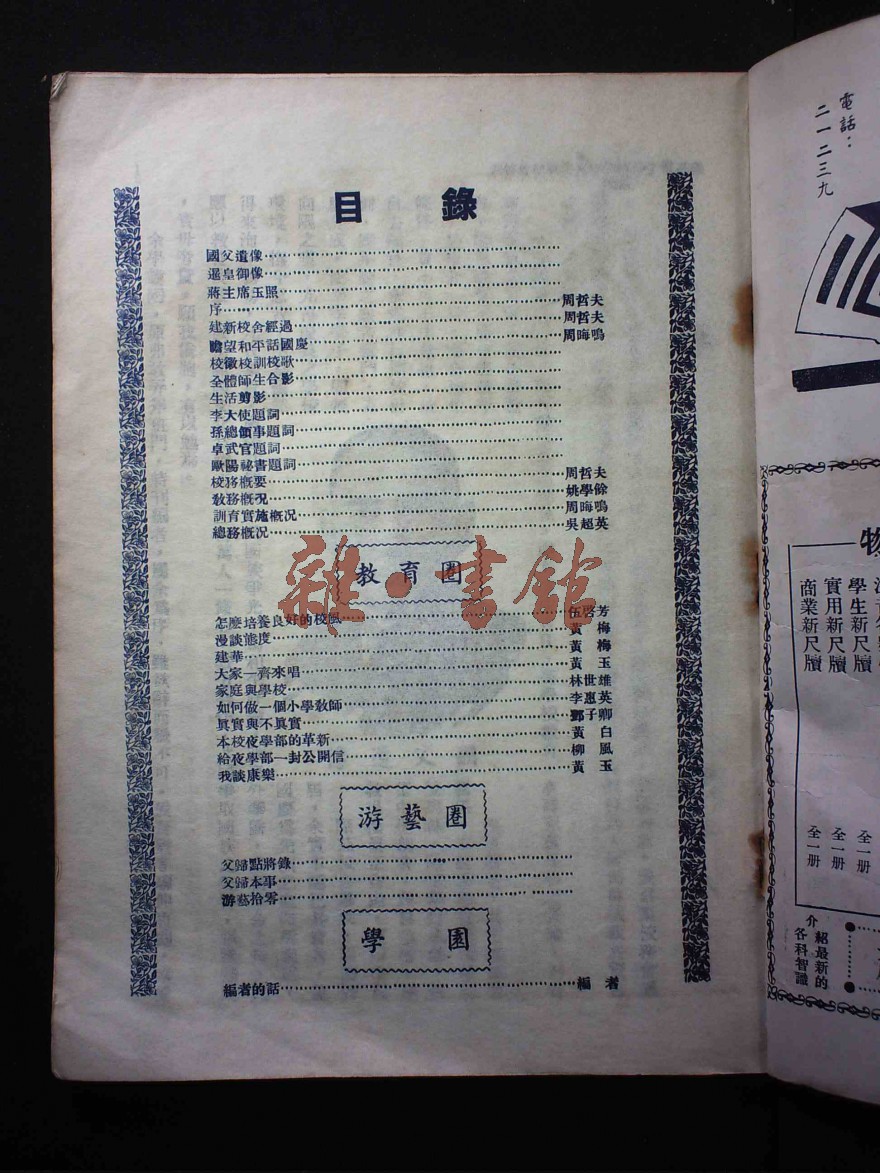 目錄
國父遺像
暹皇御像
蔣主席玉照
序 周哲夫
建新校舍經過 周哲夫
瞻望和平話國慶 周晦鳴
校徽校訓校歌
全體師生合影
生活剪影
李大使題詞
孫總領事題詞
卓武官題詞
歐陽祕書題詞
校務概要 周哲夫
教務概況 姚學餘
訓育實施概況 周晦鳴
總務概况 吳超英
教育圈
怎麼培養良好的校風 伍啓芳
漫談態度 黃梅
建華 黃梅
大家一齊來唱 黃玉
家庭與學校 林世雄
如何做一個小學教師 李惠英
眞實與不眞實 鄧子卿
本校夜學部的革新 黃白
給夜學部一封公開信 柳風
我談康樂 黃玉
游藝圈
父歸點將錄
父歸本事
游藝拾零
學園
編者的話 編者
雜·書館
電話：
二一二三九
物
學生新尺牘
實用新尺牘
商業新尺牘
全一册
全一册
全一册
介紹最新的
各科智識